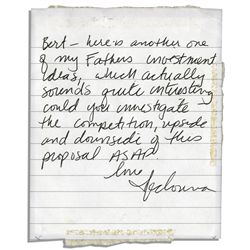 Bert - here is another one
of my Fathers investment
ideas, which actually
sounds quite interesting
could you investigate
the competition, upside
and downside of this
proposal ASAP.
love